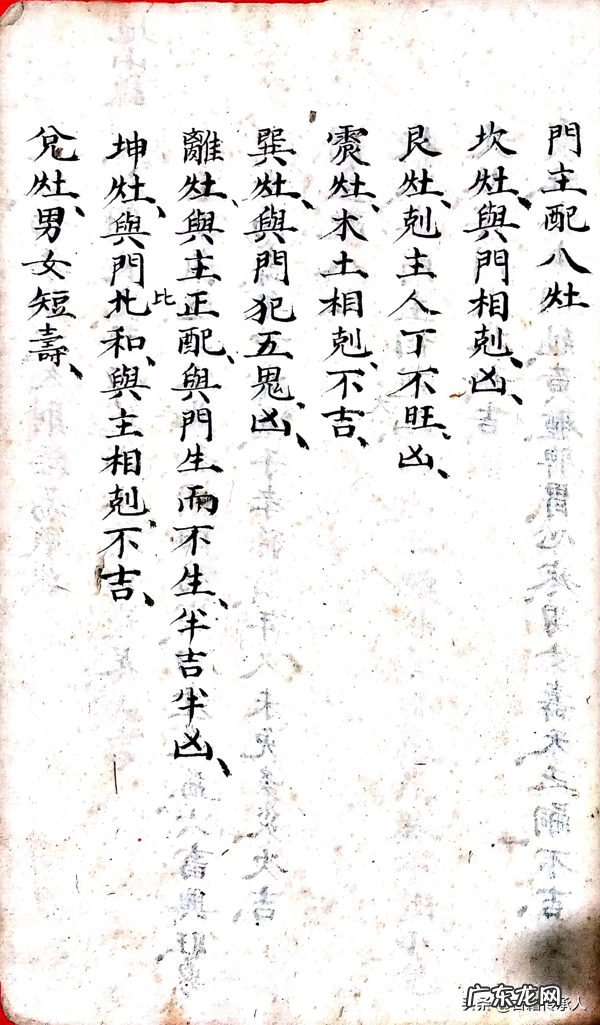 門主配八灶
坎灶、與門相剋、凶、
艮灶、剋主人丁不旺、凶、
震灶、木土相剋、不吉、
巽灶、與門犯五鬼、凶、
離灶、與主正配、與門生而不生、半吉半凶、
坤灶、與門比和、與主相剋、不吉、
兌灶、男女短壽、
广东龙网
头条